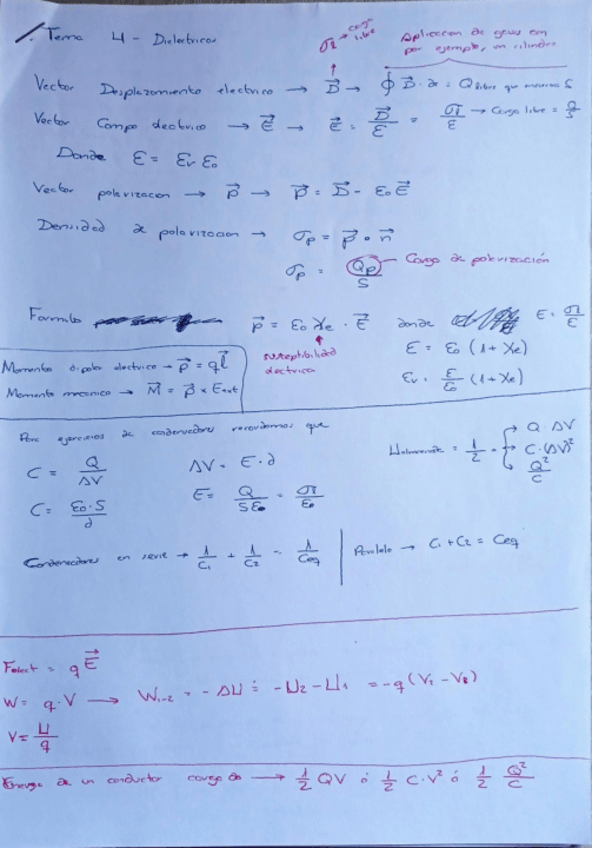 1. Tema 4 - Dielectricos
σl → carga libre
Aplicacion de gauss con por ejemplo, un cilindro
Vector Desplazamiento electrico → D⃗ → ∮ D⃗ · ds = Q libre que encierra S
Vector Campo electrico → E⃗ → E⃗ = D⃗/ε = σl/ε → Carga libre = Q/S
Donde ε = εr ε0
Vector polarizacion → P⃗ → P⃗ = D⃗ - ε0 E⃗
Densidad de polarizacion → σp = P⃗ · n⃗
σp = Qp/S Carga de polarización
Formula P⃗ = ε0 χe · E⃗ donde E = σl/ε
susceptibilidad electrica
ε = ε0 (1 + χe)
εr = ε/ε0 (1 + χe)
Momento dipolo electrico → p⃗ = q l⃗
Momento mecanico → M⃗ = p⃗ × Eext
Para ejercicios de condensadores recordamos que
C = Q/ΔV ΔV = E · d
C = ε0 · S/d E = Q/Sε0 = σl/ε0
Ualmacenada = 1/2 · Q · ΔV
C · (ΔV)²
Q²/C
Condensadores en serie → 1/C1 + 1/C2 = 1/Ceq
Paralelo → C1 + C2 = Ceq
Felect = q E⃗
W = q · V → W1-2 = - ΔU = -U2 - U1 = -q (V2 - V1)
V = U/q
Energia de un conductor cargado → 1/2 QV ó 1/2 C · V² ó 1/2 Q²/C